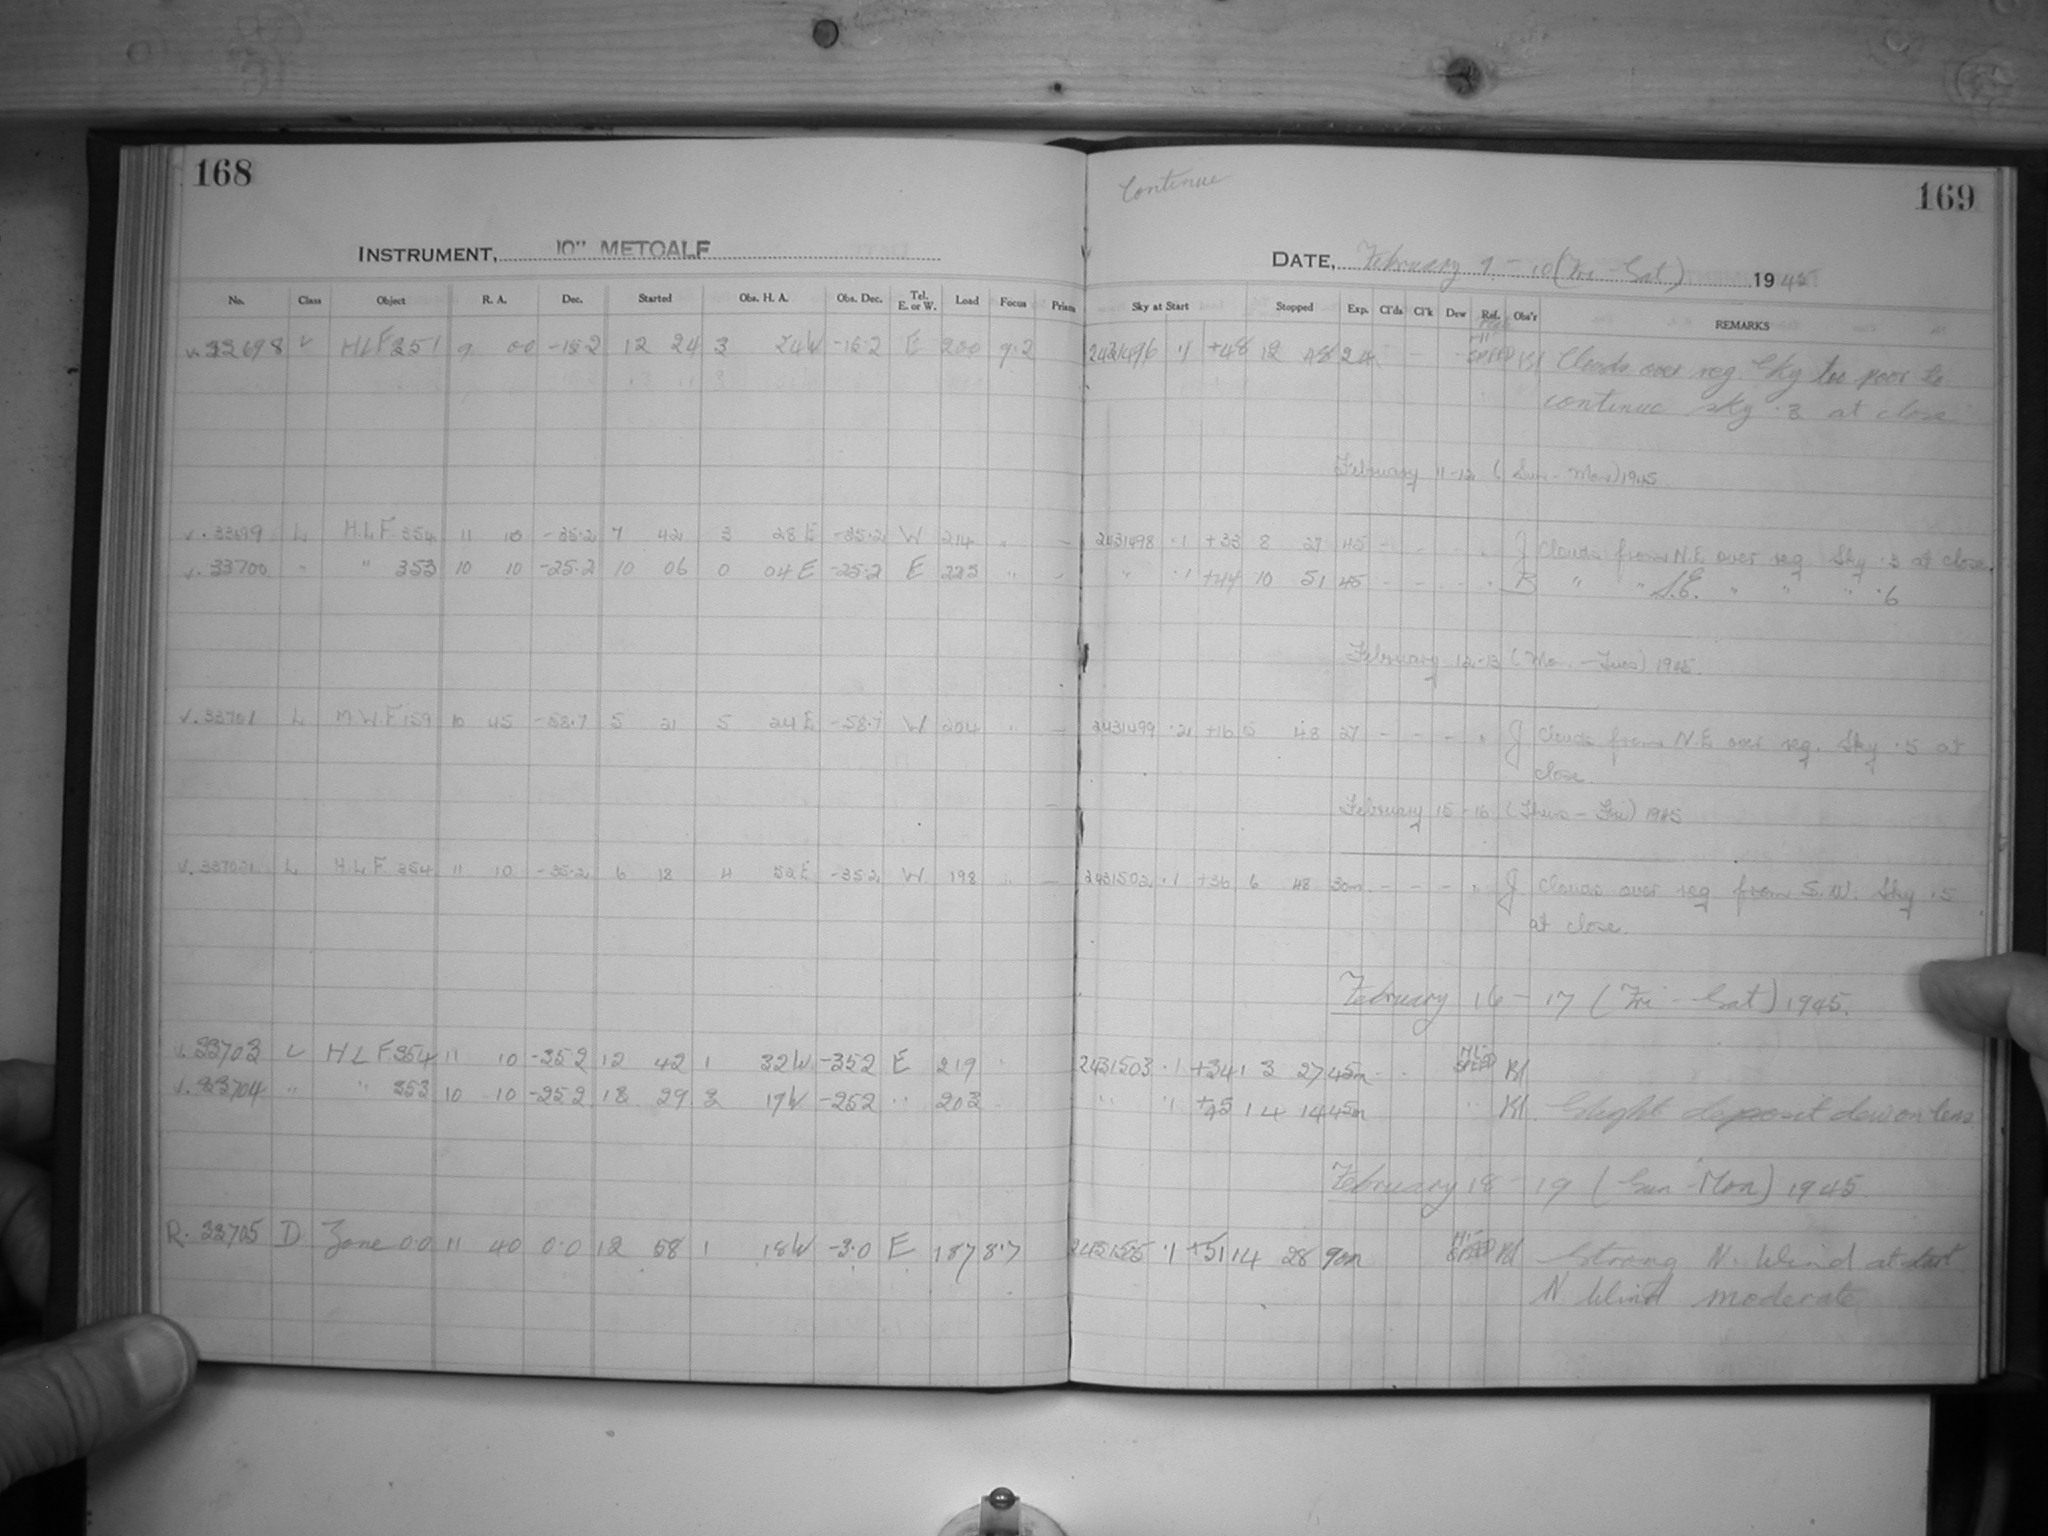 168
Continue
169
INSTRUMENT, 10" METCALF
DATE, February 9 - 10 (Fri - Sat) 1945
No. Class Object R. A. Dec. Started Obs. H. A. Obs. Dec. Tel. E. or W. Load Focus Prism Sky at Start Stopped Exp. Cl'ds Cl'k Dew Ref. Obs'r REMARKS
v. 33698 L HLF 351 9 00 -15.2 12 24 3 24W -15.2 E 200 9.2 2431496 .1 +48 12 48 24 HI SPEED Bl Clouds over reg. Sky too poor to
continue sky .3 at close
February 11-12 (Sun - Mon) 1945
v. 33699 L H.L.F. 354 11 10 -35.2 7 42 3 28 E -35.2 W 214 " - 2431498 .1 +33 8 27 45 - - - " J Clouds from N.E over reg. Sky .3 at close.
v. 33700 " " 353 10 10 -25.2 10 06 0 04 E -25.2 E 223 " - " .1 +44 10 51 45 - - - " B " " S.E. " " " .6
February 12-13 (Mon. - Tues) 1945
v. 33701 L M.W.F 159 10 45 -58.7 5 21 5 24 E -58.7 W 204 " - 2431499 .2 +16 5 48 27 - - - " J Clouds from N.E over reg. Sky .5 at
close.
February 15-16 (Thurs - Fri) 1945
v. 33702 L H.L.F. 354 11 10 -35.2 6 18 4 52 E -35.2 W. 198 " - 2431502 .1 +36 6 48 30m - - - " J Clouds over reg from S.W. Sky .5
at close.
February 16 - 17 (Fri - Sat) 1945.
v. 33703 L HLF 354 11 10 -352 12 42 1 32W -352 E 219 " 2431503 .1 +34 13 27 45m - - HI-SPEED Bl
v. 33704 " " 353 10 10 -252 13 29 3 17W -252 " 203 " .1 +45 14 14 45m " Bl. Slight deposit dew on lens
February 18 - 19 (Sun - Mon) 1945
R. 33705 D Zone 0.0 11 40 0.0 12 58 1 18W -3.0 E 187 8.7 .1 +51 14 28 90m HI-SPEED Bl Strong N. Wind at start
N Wind moderate